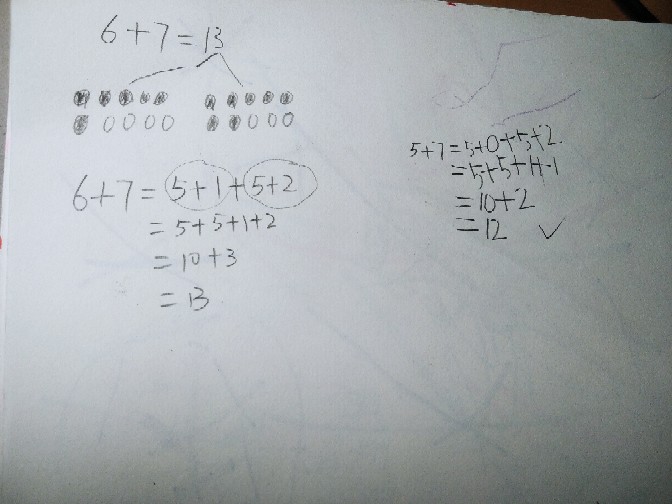 6+7=13
6+7=5+1+5+2
=5+5+1+2
=10+3
=13
5+7=5+0+5+2.
=5+5+1+1
=10+2
=12 ✓